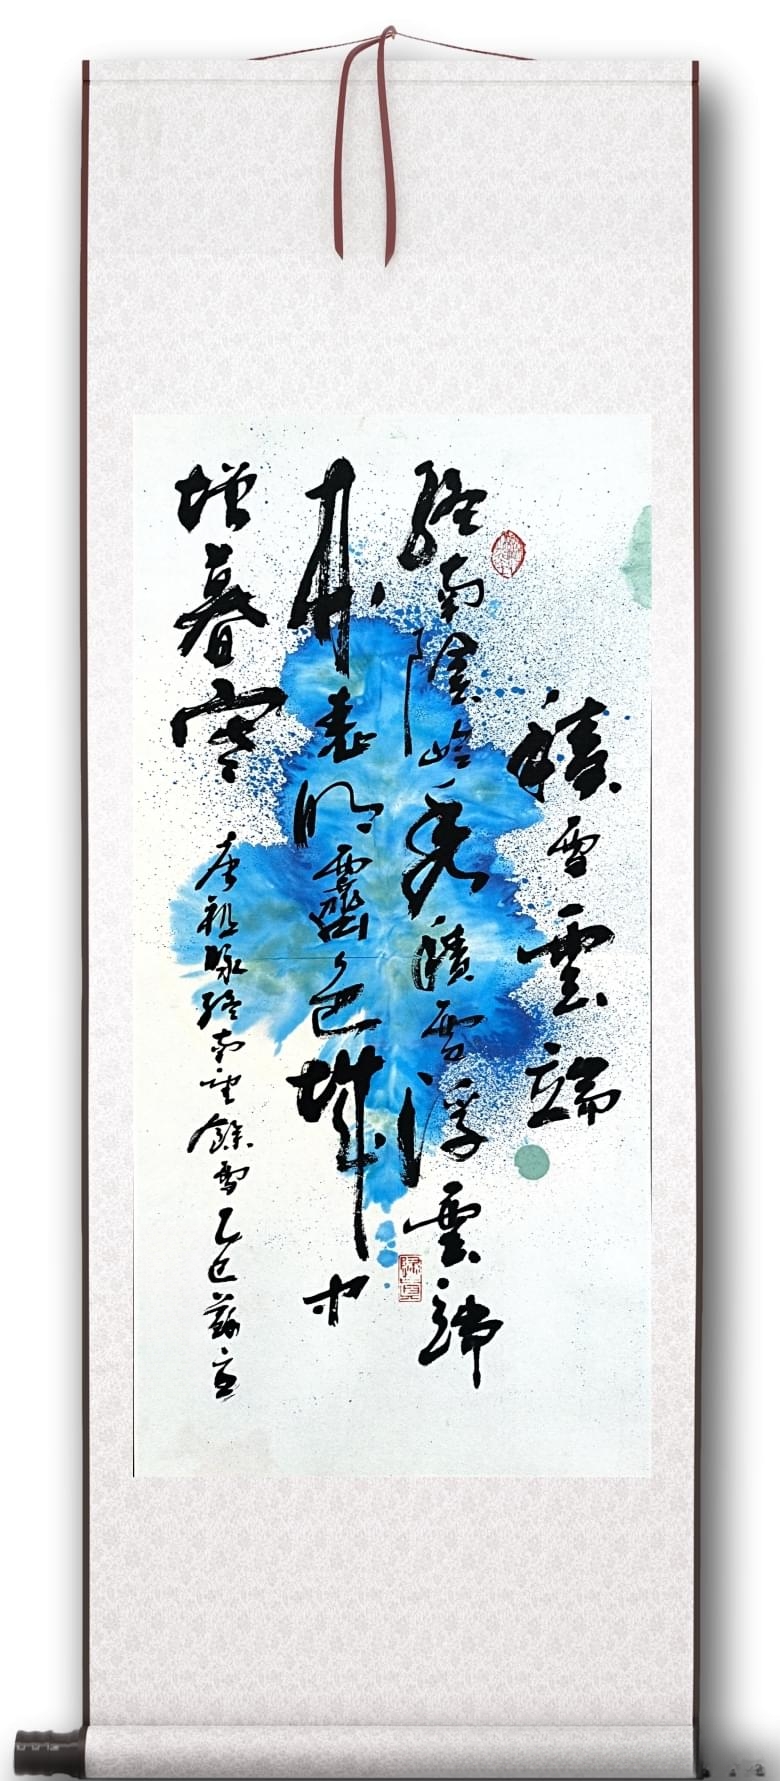 積雪雲端
終南陰嶺秀積雪浮雲端
林表明霽色城中
增暮寒
唐祖詠終南望餘雪乙巳蘇立